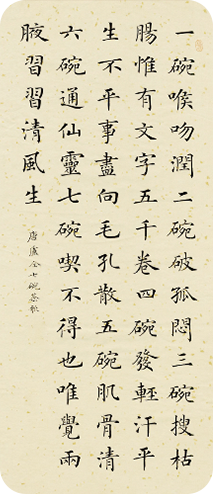 一碗喉吻潤二碗破孤悶三碗搜枯
腸惟有文字五千卷四碗發輕汗平
生不平事盡向毛孔散五碗肌骨清
六碗通仙靈七碗喫不得也唯覺兩
腋習習清風生
唐盧仝七碗茶歌